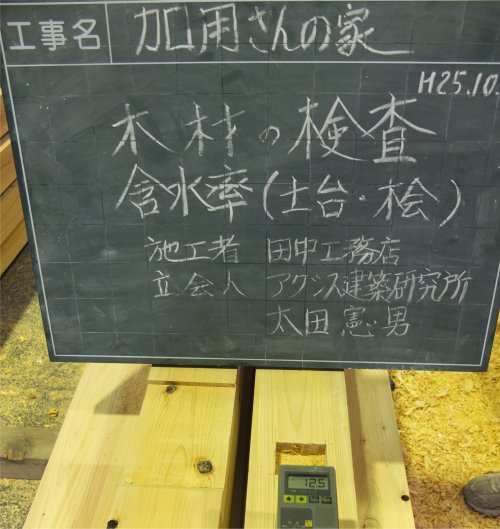 工事名 加用さんの家
H25.10.
木材の検査
含水率(土台・桧)
施工者 田中工務店
立会人 アクシス建築研究所
太田憲男
12.5